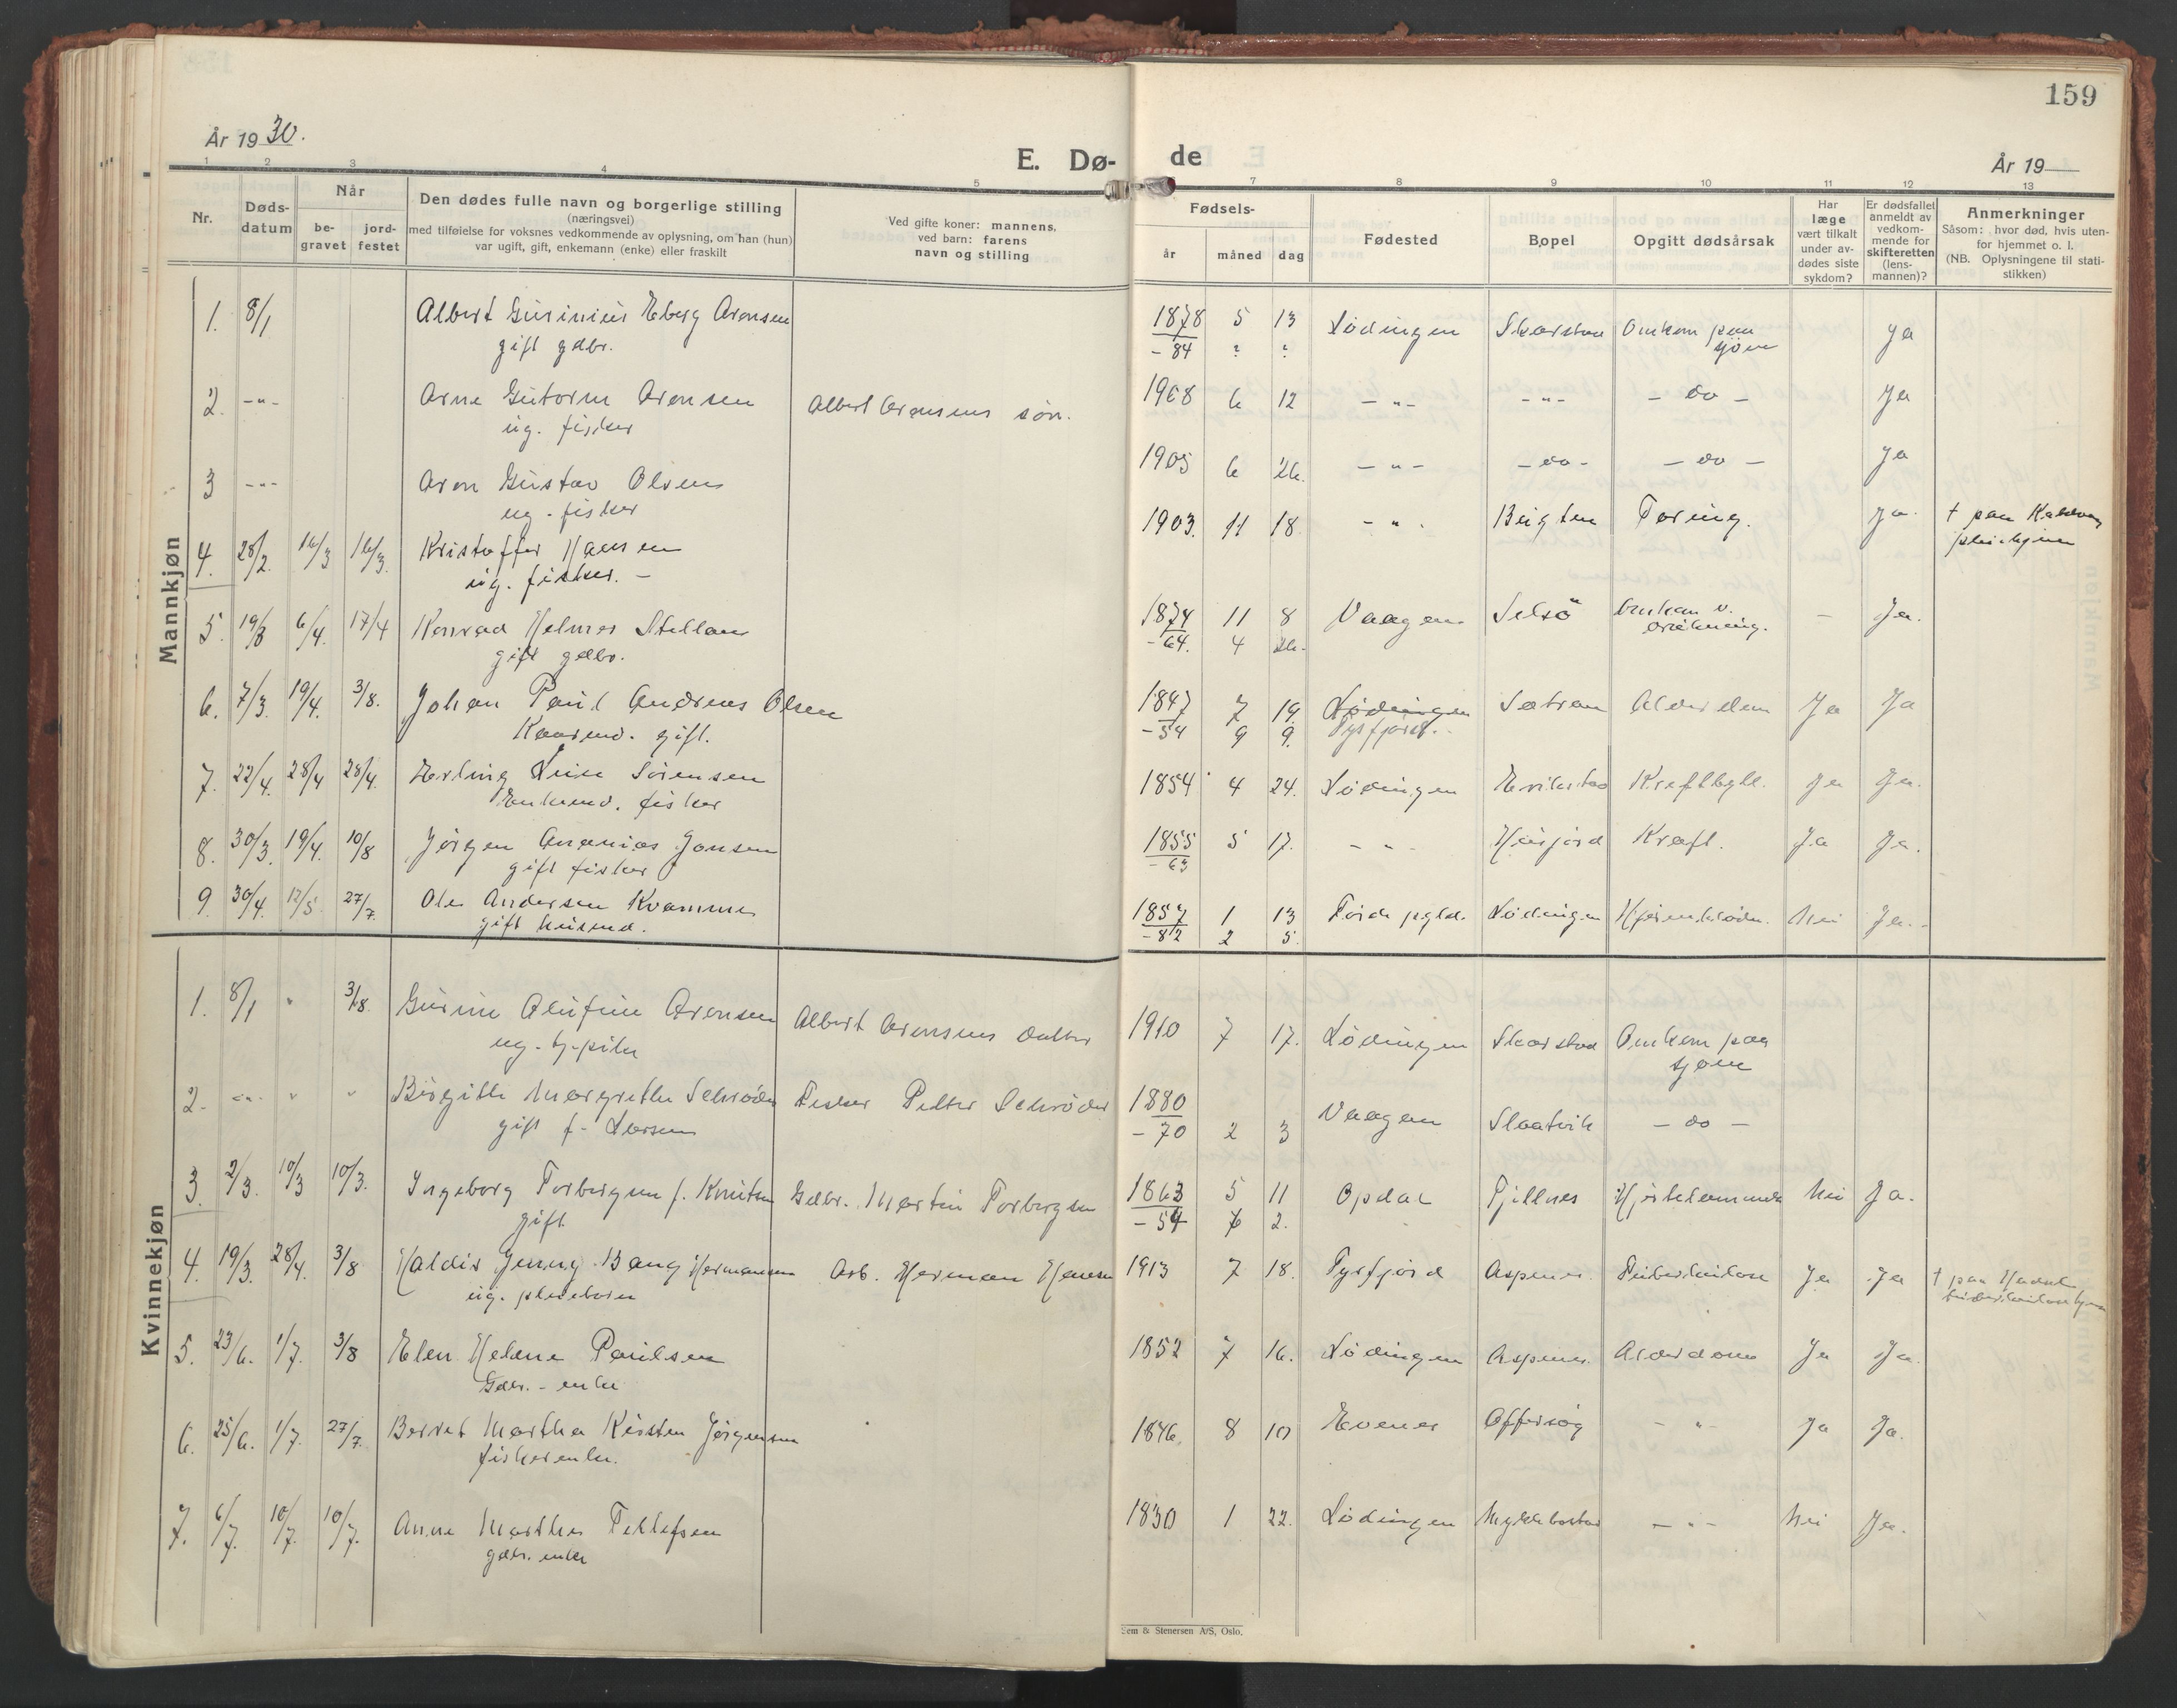 159
År 1930.
E. Dø-
de
År 19
1 2 3 4 5 7 8 9 10 11 12 13
Nr.
Døds-
datum
Når
be-
gravet
jord-
festet
Den dødes fulle navn og borgerlige stilling
(næringsvei)
med tilføielse for voksnes vedkommende av oplysning, om han (hun)
var ugift, gift, enkemann (enke) eller fraskilt
Ved gifte koner: mannens,
ved barn: farens
navn og stilling
Fødsels-
år måned dag
Fødested
Bopel
Opgitt dødsårsak
Har
læge
vært tilkalt
under av-
dødes siste
sykdom?
Er dødsfallet
anmeldt av
vedkom-
mende for
skifteretten
(lens-
mannen)?
Anmerkninger
Såsom: hvor død, hvis uten-
for hjemmet o. l.
(NB. Oplysningene til stati-
stikken)
Mannkjøn
1. 8/1 Albert Gurinius Eberg Arensen 1878 5 13 Lødingen Skarstad Omkom paa ja
gift gdbr. - 84 ? ? sjøen
2. -"- Arne Gutorm Arensen Albert Arensens søn. 1908 6 12 -"- -"- - do - Ja
ug. fisker
3 -"- Aron Gustav Olsen 1905 6 26. -"- - do - - do - Ja
ug. fisker
4. 28/2. 16/3 16/3. Kristoffer Hansen 1903. 11 18 -"- Tæring. ja. † paa
ug. fisker. -
5. 19/3 6/4. 17/4 Konrad Helmer 1874 11 8 Vaagen Selsø omkom v. - Ja.
gift gdbr. - 64. 4 26.
6. 7/3. 19/4. 3/8. Johan Paul Andreas Olsen 1847 7 19. Lødingen Sætran Alderdom Ja Ja
Kaarmd. gift. - 54 9 9. Tysfjord.
7. 22/4. 28/4 28/4. Erling Sørensen 1854 4 24. Lødingen Erikstad Kreftbyll. Ja Ja.
Enkemd. fisker
8. 30/3. 19/4. 10/8 Jørgen Ananias Jonsen 1855 5 17. -"- Kræft. Ja Ja.
gift fisker - 63
9. 30/4. 12/5. 27/7. Ole Andersen Kvamme 1857 1 13 Førde pgld. Lødingen Nei Ja.
gift husmd. - 82 2 5.
Kvinnekjøn
1. 8/1 " 3/8. Gurine Olufine Arensen Albert Arensens datter 1910 7 17. Lødingen Skarstad Omkom paa
ug. sjøen
2. -"- " " Birgitte Margrethe Schrøder Fisker Petter Schrøder 1880 Vaagan Slaatvik - do -
gift f. Larsen - 70 2 3
3. 2/3. 10/3 10/3. Ingeborg Torbergsen f. Knutsen Gdbr. Martin Torbergsen 1863 5 11 Opdal Fjellnes Nei Ja.
gift - 54 6 2.
4. 19/3. 28/4. 3/8 Haldis Jenny Bang Hermansen Arb. Herman Hansen 1913 7 18. Tysfjord Aspenes Tuberkulose Ja Ja † paa
ug. pleiebarn
5. 23/6. 1/7. 3/8 Elen Helene Paulsen 1852 7 16. Lødingen Aspenes Alderdom Ja Ja.
Gdbr. - enke
6. 25/6. 1/7. 27/7. Berret Martha Kirsten Jørgensen 1846. 8 10 Evenes Offersøy -"- Ja Ja.
fiskerenke.
7. 6/7. 10/7. 10/7. Anne Marthe Tellefsen 1830 1 22. Lødingen Myklebostad -"- Nei Ja.
gdbr. enke
Sem & Stenersen A/S, Oslo.